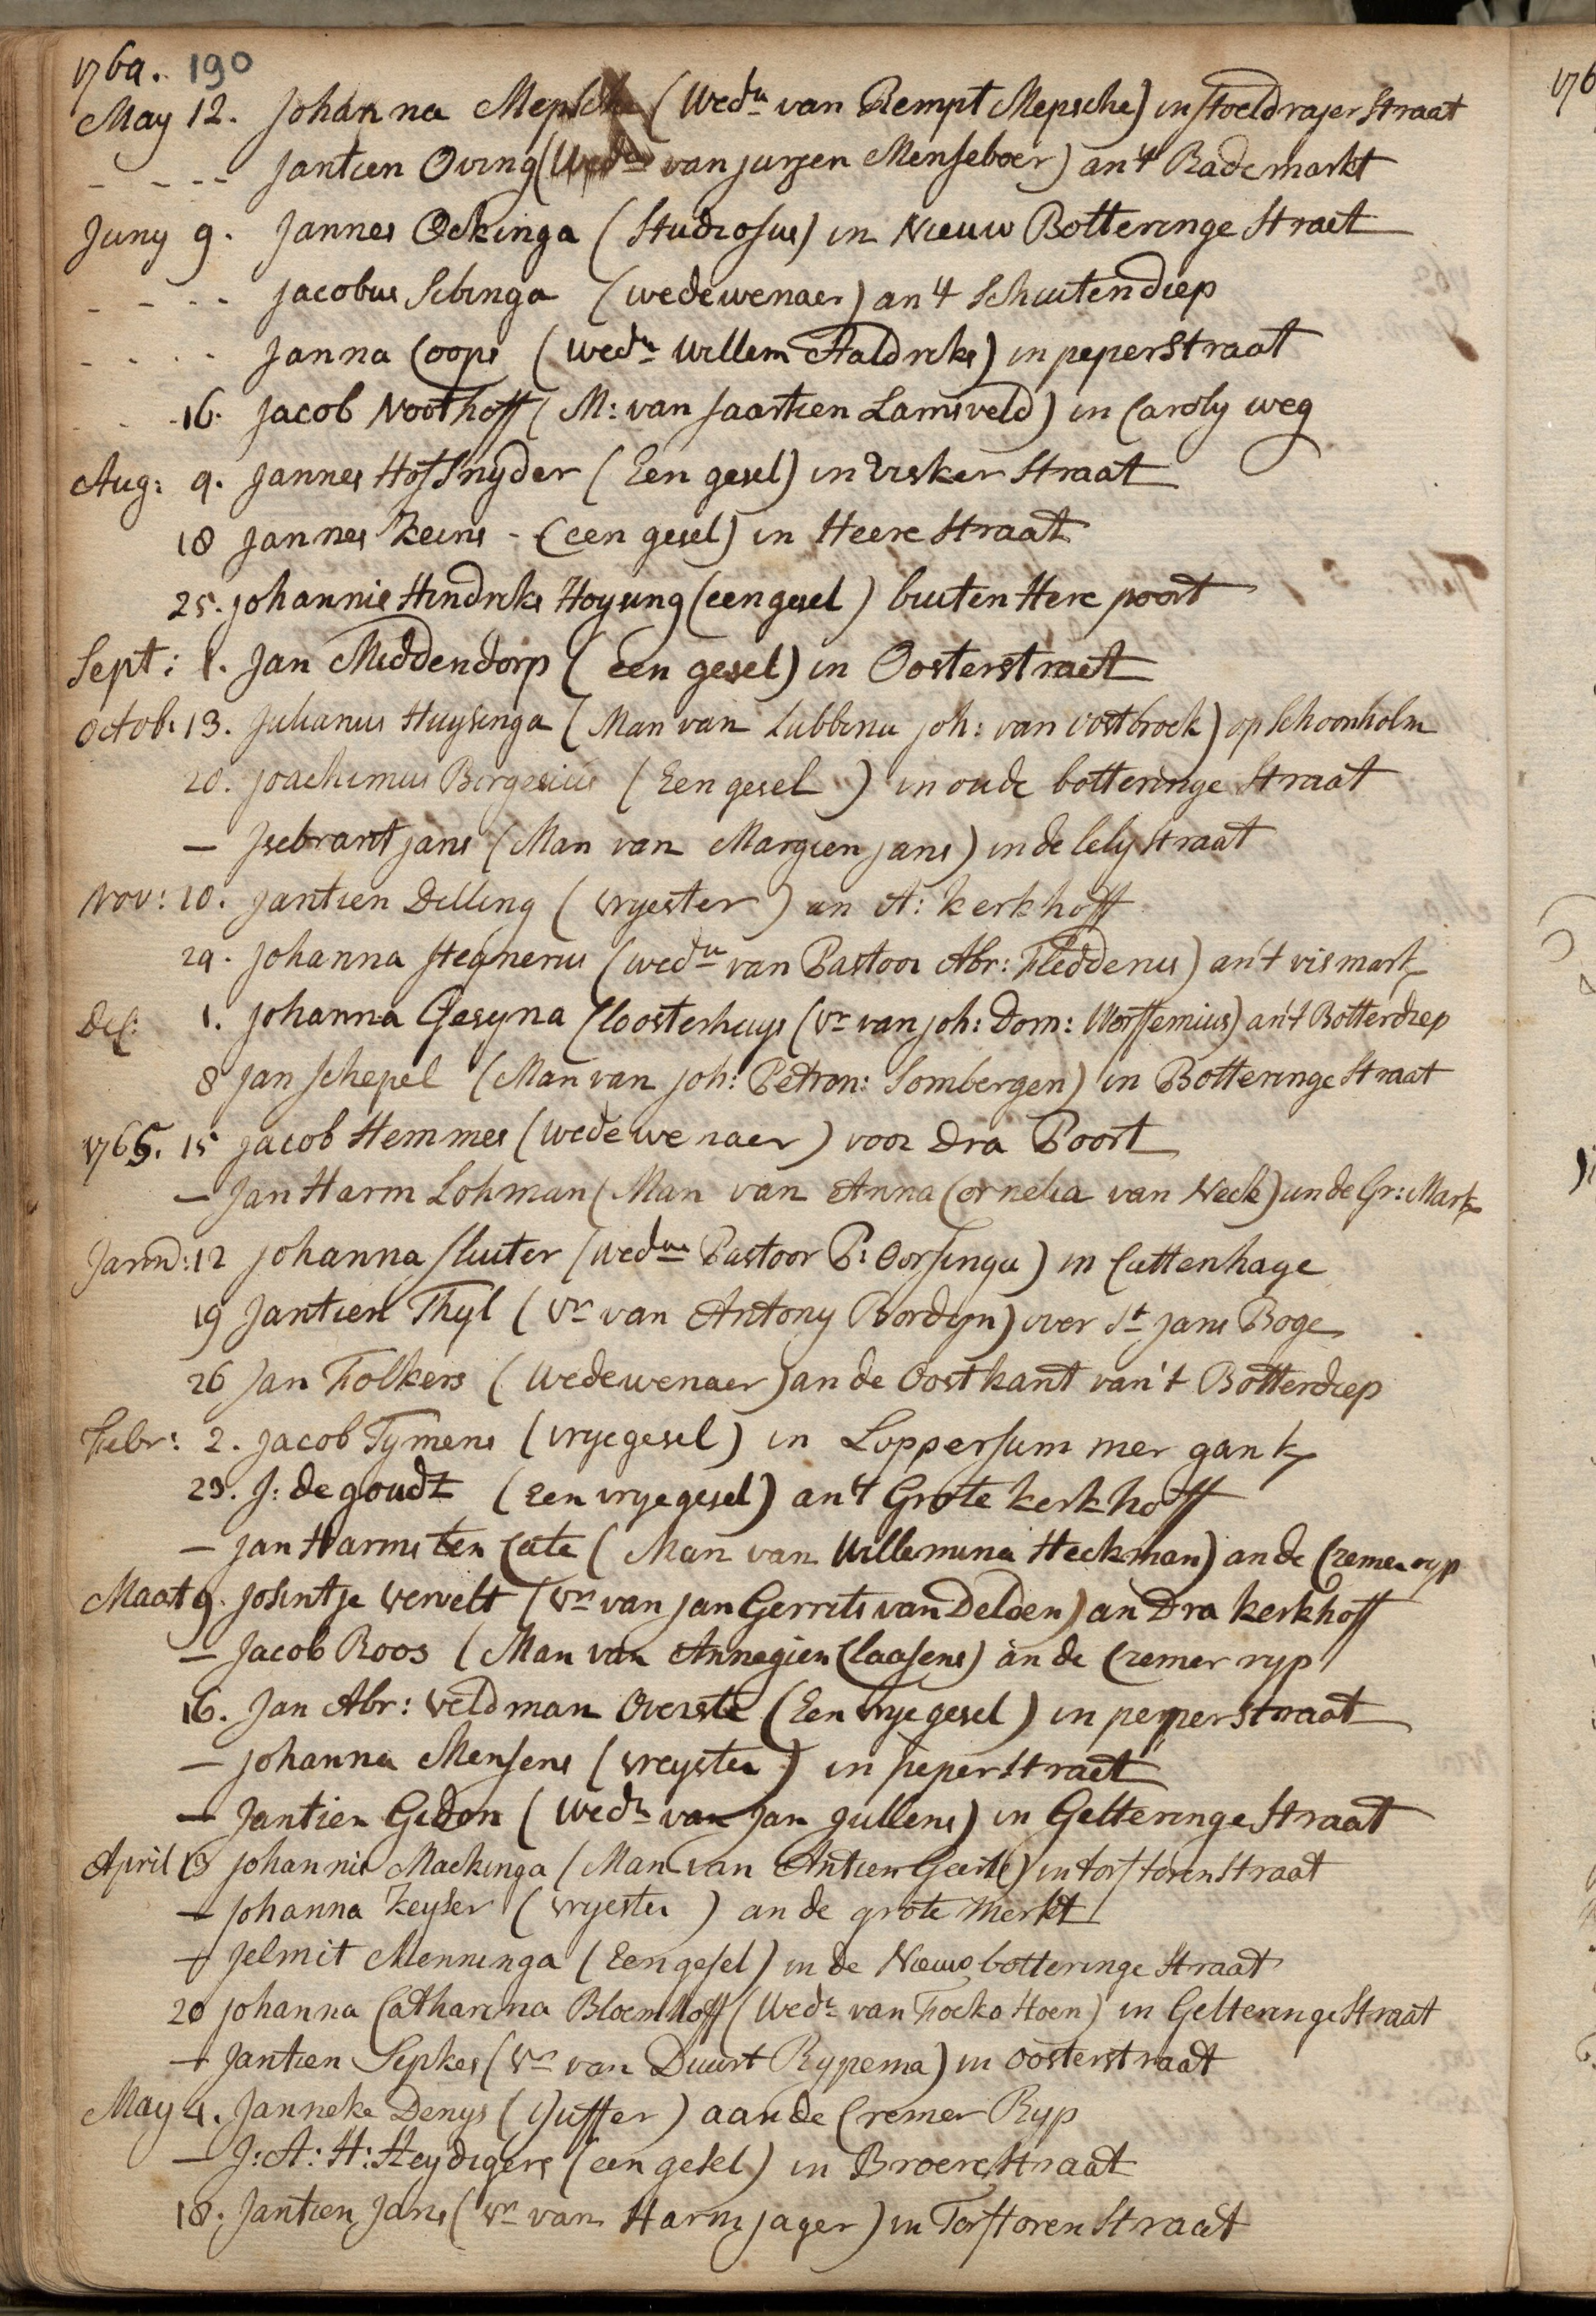 1764. 190
May 12. Johanna Mepsche (Wedu van Rempt Mepsche) in stoeldrajer Straat
- - - - Jantien Oving (Wedu van jurjen Menseboer) an 't Rademarkt
Juny 9. Jannes Ockinga (Studiosus) in Nieuw Botteringe Straet
- - - - Jacobus Sibinga (wedewenaer) an 't Schuitendiep
- - - - Janna Coops (Wedu Willem Aaldriks) in peperstraat
- - 16. Jacob Noothoff (M: van Jaartien Lamsveld) in Caroly weg
Aug: 9. Jannes Hofsnyder (Een gesel) in Visker Straat
18 Jannes Keins - (een gesel) in Heere Straat
25. Johannis Hindriks Hoysing (een gesel) buiten Here poort
Sept: 1. Jan Middendorp (een gesel) in Oosterstraet
Octob: 13. Julianus Huysinga (Man van Lubbina joh: van Oostbroek) op Schoonholm
20. Joachimus Borgesius (Een gesel) in oude botteringe Straat
— Isebrant jans (Man van Margien jans) in de lelystraat
Nov: 10. Jantien Dilling (vryester) an A: kerkhoff
29. Johanna Stegnerus (wedu van Pastoor Abr: Fledderus) an 't vismark
Dec: 1. Johanna Gesyna Cloosterhuys (Vr van joh: Dom: Worssemius) an 't Botterdiep
8 Jan Schepel (Man van joh: Petron: Sombergen) in Botteringe Straat
1765. 15 Jacob Hemmes (wedewenaer) voor Dra Poort
— Jan Harm Lohman (Man van Anna Cornelia van Neck) an de Gr: Mark
Janu: 12 Johanna Sluiter (wedue Pastoor P: Oorsinga) in Cattenhage
19 Jantien Thyl (Vr van Antony Bordyn) over St jans Boge
26 Jan Folkers (Wedewenaer) an de Oostkant van 't Botterdiep
Febr: 2. Jacob Tymens (vryegesel) in Loppersummer gank
23. J: de goudt (Een vryegesel) an 't Grote kerkhoff
— Jan Harms ten Cate (Man van Willemina Heckman) an de Cremer ryp
Maart 9. Josintje Vervelt (Vr van jan Gerrits van Delden) an Dra kerkhoff
— Jacob Roos (Man van Annegien Claasens) an de Cremer ryp
16. Jan Abr: Veldman Overste (Een vryegesel) in peperstraat
— Johanna Mensens (vreyster) in peperstraet
— Jantien Gidon (Wedu van Jan Jullens) in Gelteringe Straat
April 13 Johannis Mackinga (Man van Antien Geerts) in torftorenstraat
— Johanna Keyser (vryester) an de grote Merkt
— Jelmit Menninga (Een gesel) in de Nieuw botteringe Straat
20 Johanna Catharina Bloemhoff (Wedu van Focko Hoen) in Gelteringe Straat
— Jantien Sipkes (Vr van Duurt Rypema) in Oosterstraat
May 4. Janneke Denys (Juffer) aan de Cremer Ryp
— J: A: H: Heydigers (een gesel) in Broerestraat
18. Jantien Jans (Vr van Harm jager) in Torftoren Straat